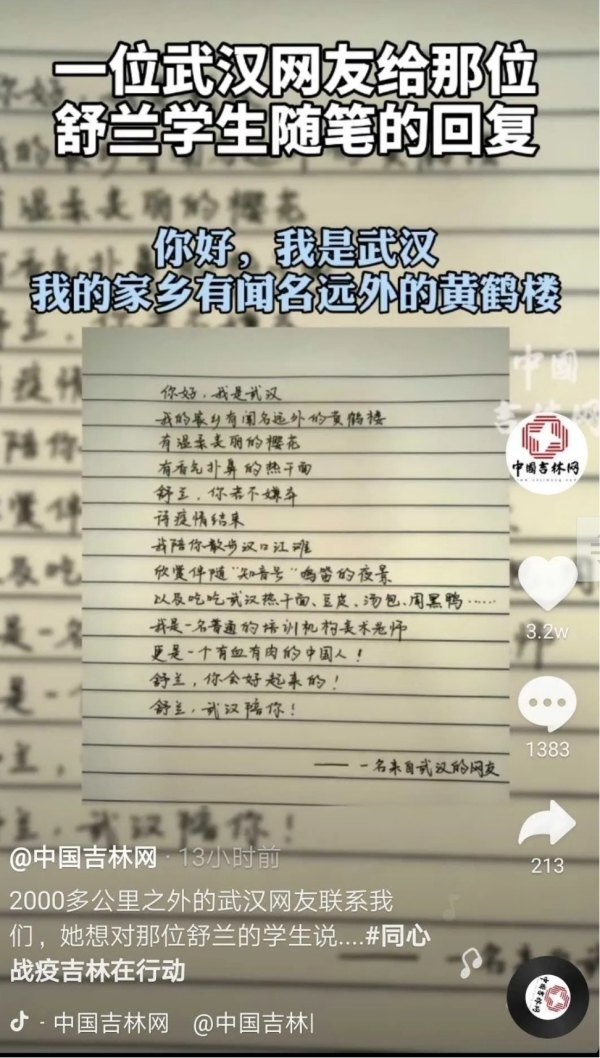 一位武汉网友给那位
舒兰学生随笔的回复
你好，我是武汉
我的家乡有闻名远外的黄鹤楼
中國
吉林网
你好，我是武汉
我的家乡有闻名远外的黄鹤楼
有温柔美丽的樱花
有香气扑鼻的热干面
舒兰，你若不嫌弃
待疫情结束
我陪你散步汉口江滩
欣赏伴随“知音号”鸣笛的夜景
以及吃吃武汉热干面、豆皮、汤包、周黑鸭……
我是一名普通的培训机构美术老师
更是一个有血有肉的中国人！
舒兰，你会好起来的！
舒兰，武汉陪你！
——一名来自武汉的网友
中国吉林网
3.2w
1383
213
@中国吉林网 · 13小时前
2000多公里之外的武汉网友联系我
们，她想对那位舒兰的学生说....#同心
战疫吉林在行动
- 中国吉林网 @中国吉林